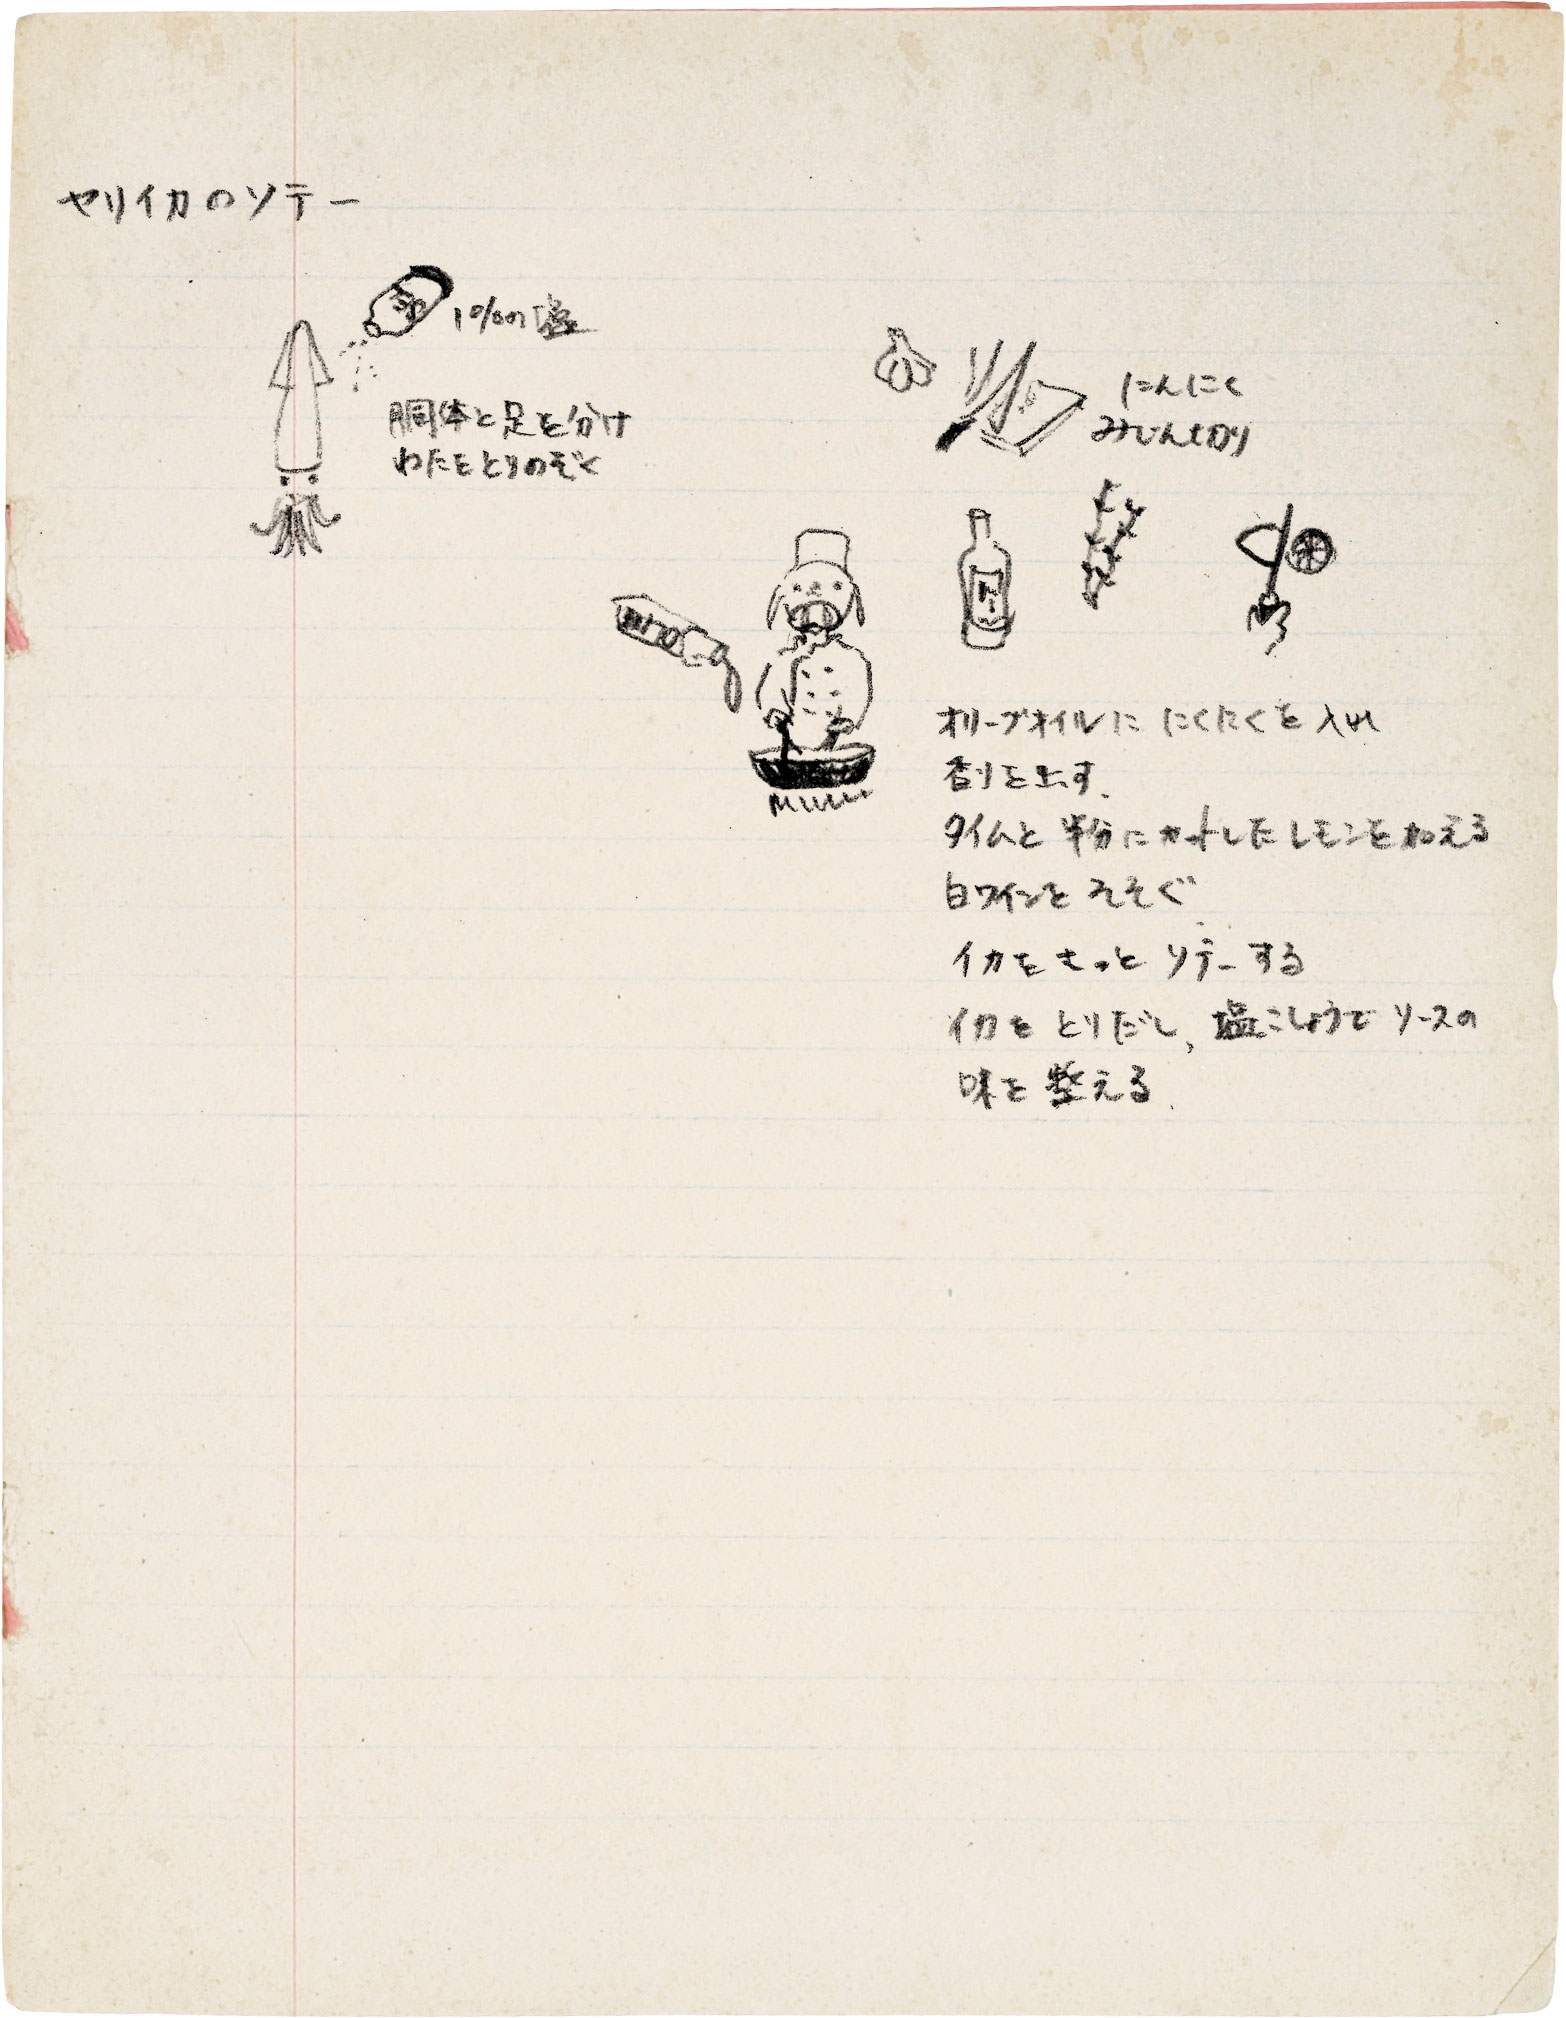 ヤリイカのソテー
1%の塩
胴体と足を分け
わたをとりのぞく
にんにく
みじん切り
オリーブオイルに にくにくを入れ
香りを出す.
タイムと半分にカットしたレモンを加える
白ワインをそそぐ
イカをさっとソテーする
イカをとりだし、塩こしょうでソースの
味を整える.